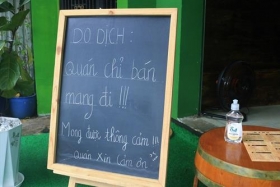 DO DỊCH :
Quán chỉ bán
mang đi !!!
Mong được thông cảm !!!
Quán Xin Cảm ơn